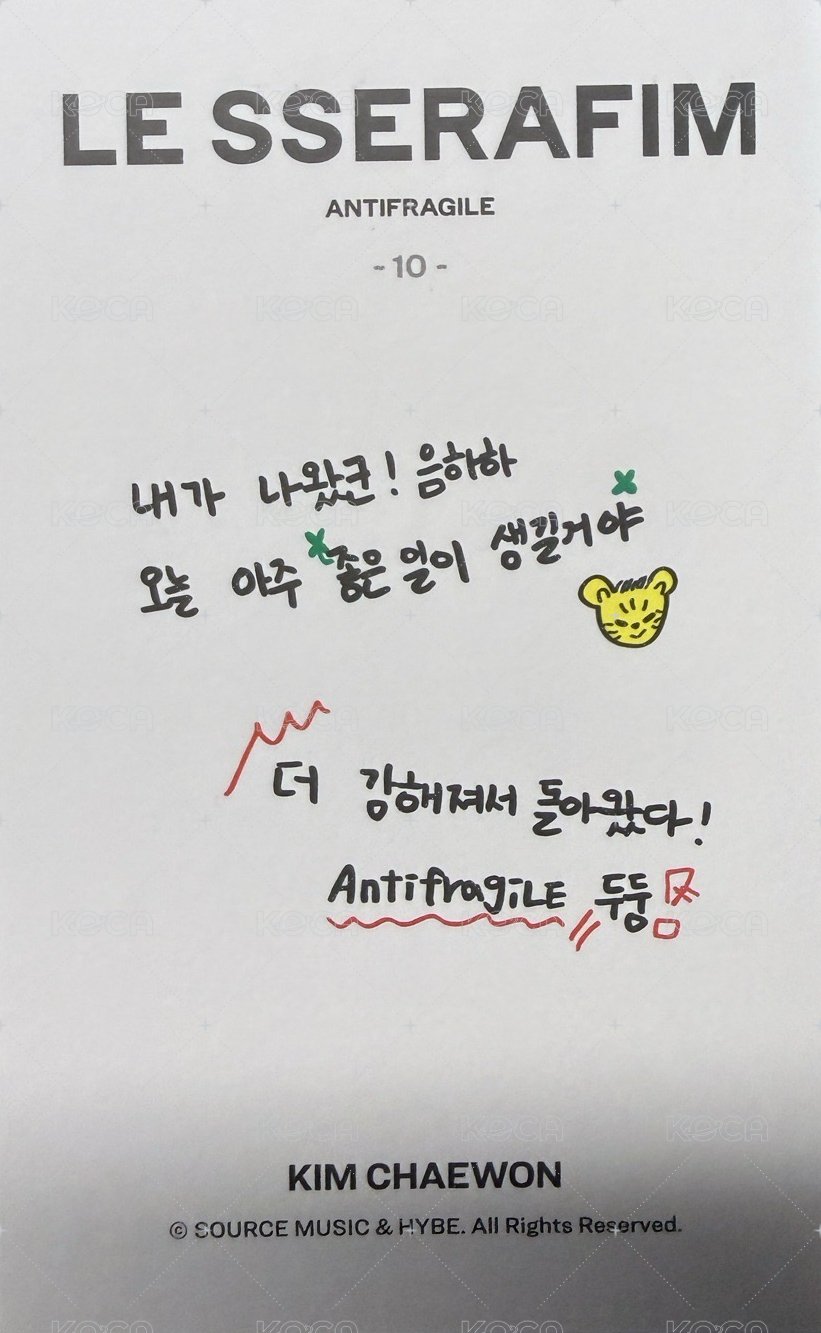 LE SSERAFIM
ANTIFRAGILE
- 10 -
내가 나왔군! 음하하
오늘 아주 좋은 일이 생길거야
더 강해져서 돌아왔다!
AntifragiLE 두둥!
KIM CHAEWON
© SOURCE MUSIC & HYBE. All Rights Reserved.